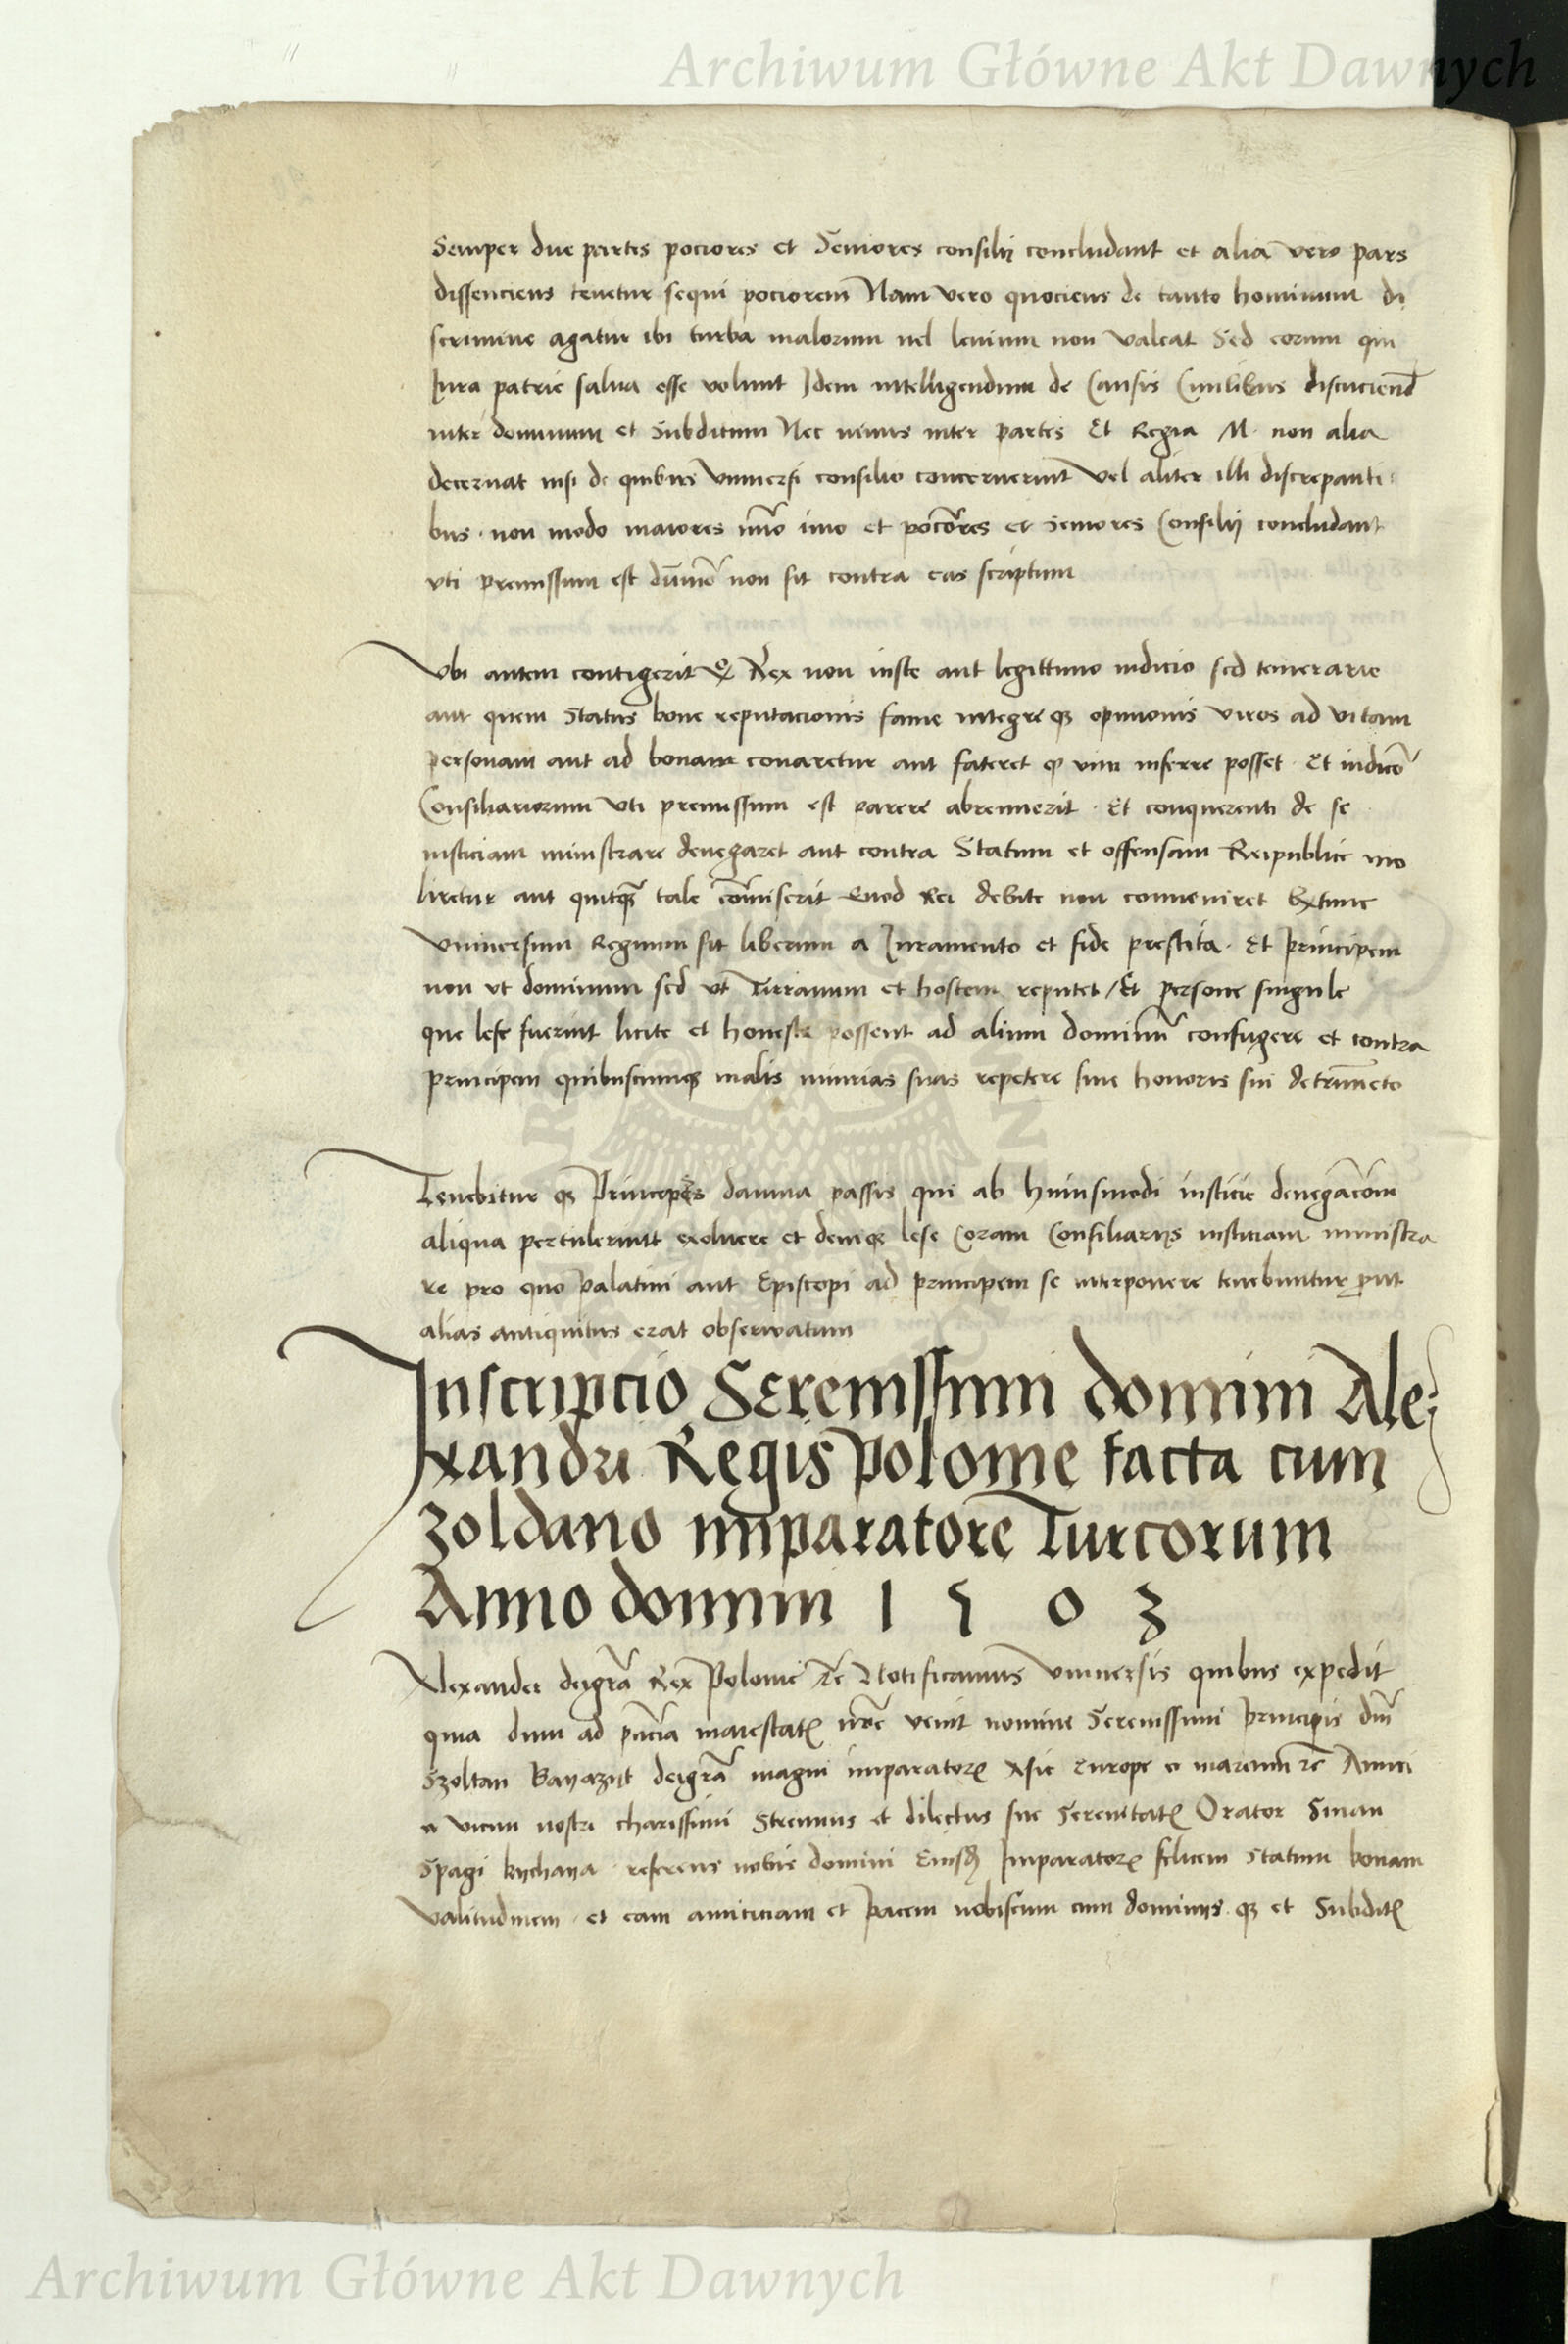 Archiwum Główne Akt Dawnych
Semper due partes pociores et Seniores consilii concludant et alia vero pars
dissenciens tenetur sequi pociorem Nam vero quociens de tanto hominum di
scrimine agatur ibi turba malorum vel levium non valeat Sed eorum qui
Jura patrie salva esse volunt Idem intelligendum de Causis Civilibus discuciend
inter dominum et Subditum Nec minus inter partes Et Regia M. non alia
decernat nisi de quibus Universi consilio concreverint Vel aliter illi discrepanti
bus non modo maiores imo et pociores et Seniores Consilii concludant
uti premissum est non sit contra eas scriptum
Ubi autem contigerit Rex non iuste aut legittimo iudicio sed temerarie
aut quem Status bone reputacionis fame integreque opinionis viros ad vitam
personam aut ad bonam conaretur aut vim inferre posset Et
Consiliariorum Uti premissum est parere abrenuerit Et conquerenti de se
iusticiam ministrare denegaret aut contra Statum et offensam Reipublice mo
liretur aut tale comiserit Quod Rei debite non conveniret Extunc
Universum Regnum sit liberum a Juramento et fide prestita Et principem
non ut dominum sed ut Tirranum et hostem reputet / Et persone singule
que lese fuerint licite et honeste possent ad alium dominum confugere et contra
principem quibuscumque malis iniurias suas repetere sine honoris sui
Tenebitur que Princeps damna passis qui ab huiusmodi iusticie denegacionem
aliqua pertulerunt exolvere et denique lese Coram Consiliariis iusticiam ministra
re pro quo Palatini aut Episcopi ad principem se interponere tenebuntur prout
alias antiquitus erat observatum
Inscripcio Serenissimi domini Ale
xandri Regis Polonie facta cum
Zoldano imparatore Turcorum
Anno domini 1 5 0 3
Alexander dei gra Rex Polonie etc Notificamus Universis quibus expedit
quia dum ad maiestatis venit nomine Serenissimi principis
Szoltan Bayazyt dei gra magni imparatoris Asie Europe a marium etc Amici
a vicini nostri charissimi Strenuus et dilectus sue Serenitatis Orator Sinan
Spagi kychaya referens nobis domini Eiusdem Imparatoris felicem statum bonam
valitudinem et eam amiciciam et pacem nobiscum cum dominiis que et Subditis
Archiwum Główne Akt Dawnych